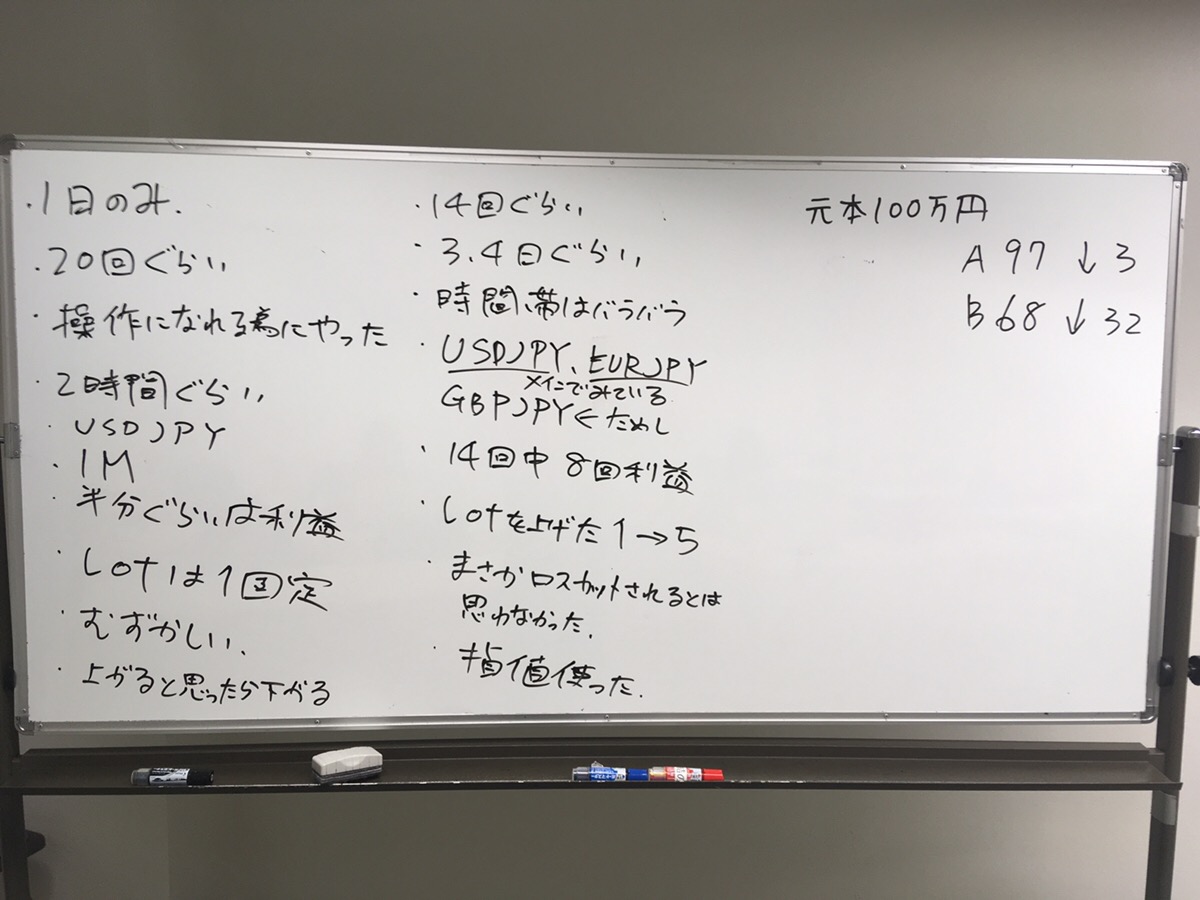 ・1日のみ.
・20回ぐらい
・操作になれる為にやった
・2時間ぐらい
・USDJPY
・1M
・半分ぐらいは利益
・Lotは1固定
・むずかしい.
・上がると思ったら下がる
・14回ぐらい
・3.4日ぐらい
・時間帯はバラバラ
・USDJPY、EURJPY
メインでみている
GBPJPY←ためし
・14回中8回利益
・Lotを上げた1→5
・まさかロスカットされるとは
思わなかった.
・指値使った.
元本100万円
A 97 ↓3
B 68 ↓32